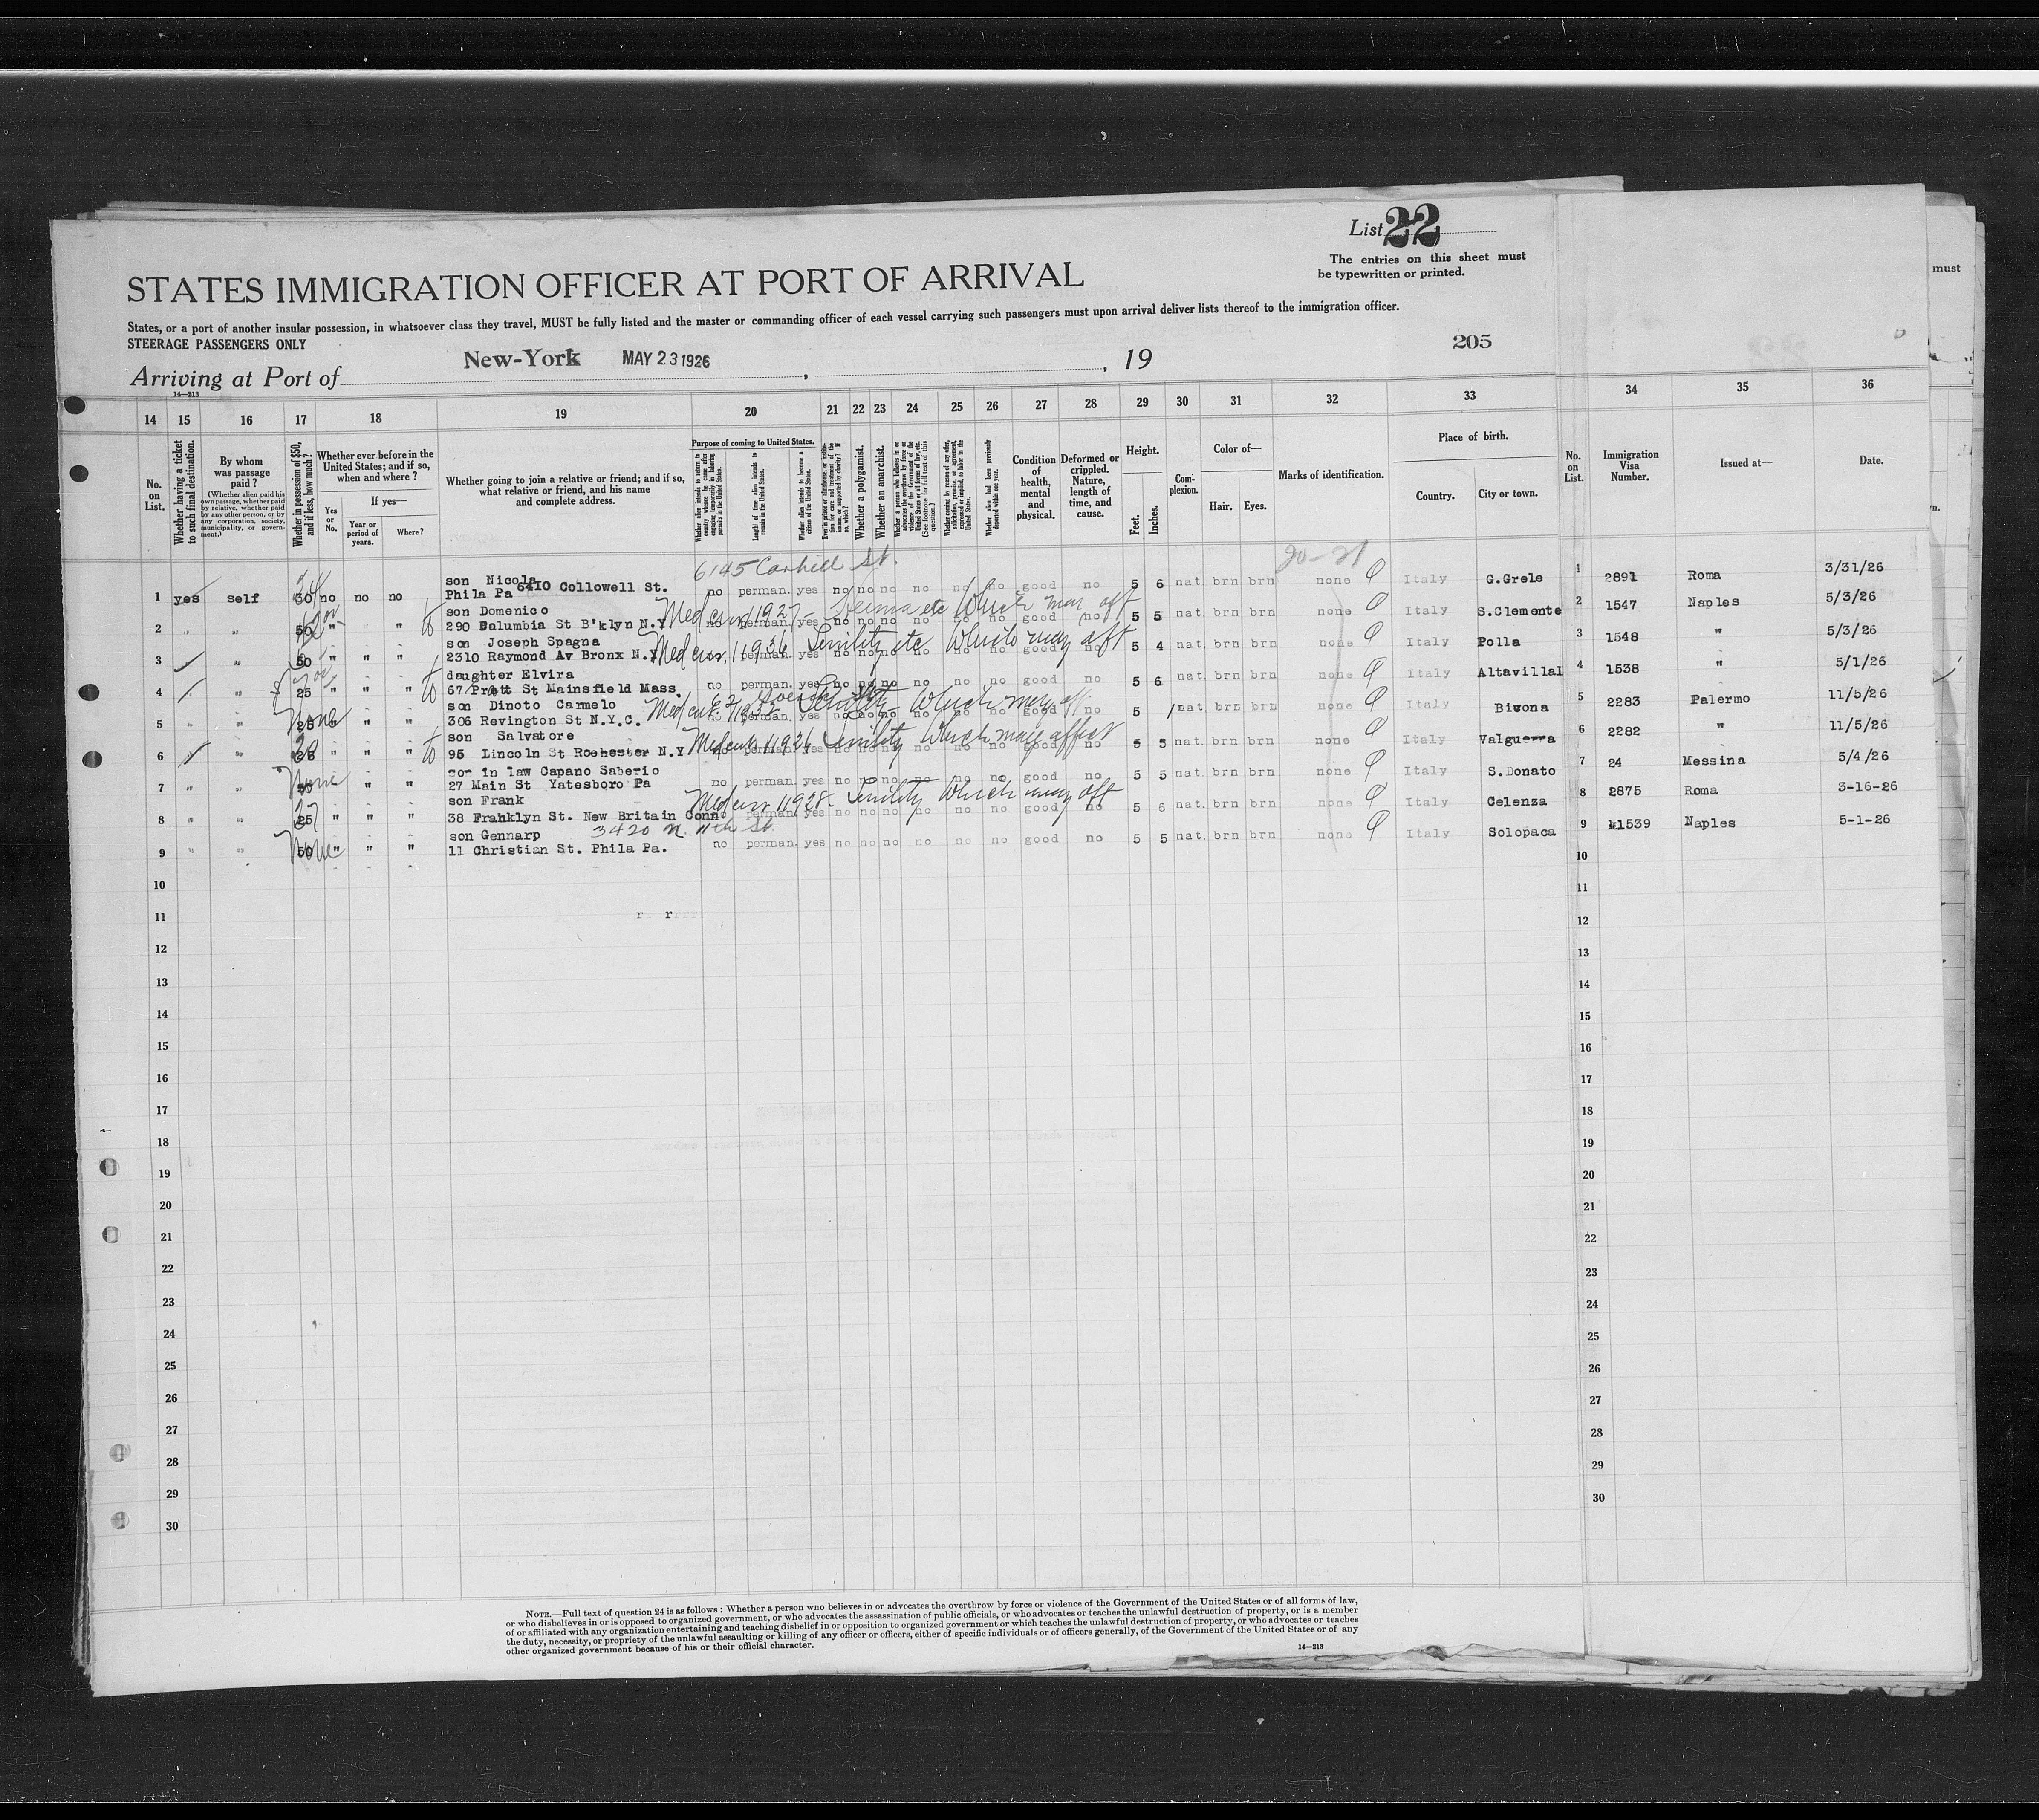 List 22
The entries on this sheet must
be typewritten or printed.
must
STATES IMMIGRATION OFFICER AT PORT OF ARRIVAL
States, or a port of another insular possession, in whatsoever class they travel, MUST be fully listed and the master or commanding officer of each vessel carrying such passengers must upon arrival deliver lists thereof to the immigration officer.
STEERAGE PASSENGERS ONLY
205
Arriving at Port of New-York MAY 23 1926 , , 19
14—213
14 15 16 17 18 19 20 21 22 23 24 25 26 27 28 29 30 31 32 33 34 35 36
No. on List.
Whether having a ticket to such final destination.
By whom was passage paid?
(Whether alien paid his own passage, whether paid by relative, whether paid by any other person, or by any corporation, society, municipality, or government.)
Whether in possession of $50, and if less, how much?
Whether ever before in the United States; and if so, when and where?
Yes or No.
If yes—
Year or period of years.
Where?
Whether going to join a relative or friend; and if so, what relative or friend, and his name and complete address.
Purpose of coming to United States.
Length of time alien intends to remain in the United States.
Whether alien intends to become a citizen of the United States.
Whether a polygamist.
Whether an anarchist.
Condition of health, mental and physical.
Deformed or crippled. Nature, length of time, and cause.
Height.
Feet. Inches.
Complexion.
Color of—
Hair. Eyes.
Marks of identification.
Place of birth.
Country. City or town.
No. on List.
Immigration Visa Number.
Issued at—
Date.
6145 St. 20-21
son Nicola
1 yes self 30 no no no Phila Pa 6410 Collowell St. no perman. yes no no no no no no good no 5 6 nat. brn brn none Italy G.Grele 1 2891 Roma 3/31/26
son Domenico
2 " " 50 " " " 290 Columbia St B'klyn N.Y. Med cer 11927 etc Which may aff no perman. yes no no no no no no good no 5 5 nat. brn brn none Italy S.Clemente 2 1547 Naples 5/3/26
son Joseph Spagna
3 " 50 " " " 2310 Raymond Av Bronx N.Y. Med cer. 11936 Senility etc Which may aff perman. yes no no no no no no good no 5 4 nat brn brn none Italy Polla 3 1548 " 5/3/26
daughter Elvira
4 " 25 " " " 67 Pratt St Mainsfield Mass. no perman. yes no no no no no no good no 5 6 nat. brn brn none Italy Altavillal 4 1538 " 5/1/26
son Dinoto Carmelo
5 " " None 25 " " 306 Revington St N.Y.C. Med cer Senility Which may aff perman. yes no no no no no no good no 5 1 nat brn brn none Italy Bivona 5 2283 Palermo 11/5/26
son Salvatore
6 " " " " 95 Lincoln St Rochester N.Y Med cer 11926 Senility Which may affect no perman. yes no no no no no no good no 5 5 nat. brn brn none Italy Valguerra 6 2282 " 11/5/26
son in law Capano Saberio
7 " " None " " 27 Main St Yatesboro Pa no perman. yes no no no no no no good no 5 5 nat. brn brn none Italy S.Donato 7 24 Messina 5/4/26
son Frank
8 " " 25 " " " 38 Franklyn St. New Britain Conn. Med cer 11928 - Senility Which may aff perman. yes no no no no no no good no 5 6 nat. brn brn none Italy Celenza 8 2875 Roma 3-16-26
son Gennarp 3420 N. 11th St.
9 " " None 50 " " " 11 Christian St. Phila Pa. no perman. yes no no no no no no good no 5 5 nat. brn brn none Italy Solopaca 9 1539 Naples 5-1-26
10 10
11 11
12 12
13 13
14 14
15 15
16 16
17 17
18 18
19 19
20 20
21 21
22 22
23 23
24 24
25 25
26 26
27 27
28 28
29 29
30 30
NOTE.—Full text of question 24 is as follows: Whether a person who believes in or advocates the overthrow by force or violence of the Government of the United States or of all forms of law,
or who disbelieves in or is opposed to organized government, or who advocates the assassination of public officials, or who advocates or teaches the unlawful destruction of property, or is a member
of or affiliated with any organization entertaining and teaching disbelief in or opposition to organized government or which teaches the unlawful destruction of property, or who advocates or teaches
the duty, necessity, or propriety of the unlawful assaulting or killing of any officer or officers, either of specific individuals or of officers generally, of the Government of the United States or of any
other organized government because of his or their official character.
14—213